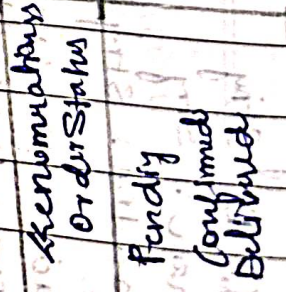 <<enumerations>>
OrderStatus
Pendig
Confirmed
Delivered